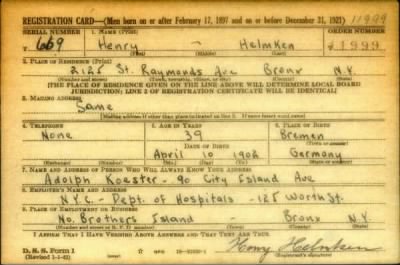 REGISTRATION CARD—(Men born on or after February 17, 1897 and on or before December 31, 1921) 11999
SERIAL NUMBER 1. NAME (Print) ORDER NUMBER
669 Henry - Helmken 11999
(First) (Middle) (Last)
2. PLACE OF RESIDENCE (Print)
2125 St. Raymonds Ave Bronx N.Y.
(Number and street) (Town, township, village, or city) (County) (State)
[THE PLACE OF RESIDENCE GIVEN ON THE LINE ABOVE WILL DETERMINE LOCAL BOARD
JURISDICTION; LINE 2 OF REGISTRATION CERTIFICATE WILL BE IDENTICAL]
3. MAILING ADDRESS
Same
[Mailing address if other than place indicated on line 2. If same insert word same]
4. TELEPHONE 5. AGE IN YEARS 6. PLACE OF BIRTH
None 39 Bremen
DATE OF BIRTH (Town or county)
April 10 1902 Germany
(Exchange) (Number) (Mo.) (Day) (Yr.) (State or country)
7. NAME AND ADDRESS OF PERSON WHO WILL ALWAYS KNOW YOUR ADDRESS
Adolph Koester - 90 City Island Ave
8. EMPLOYER'S NAME AND ADDRESS
N.Y.C. - Dept. of Hospitals - 125 Worth St.
9. PLACE OF EMPLOYMENT OR BUSINESS
No. Brothers Island - Bronx N.Y.
(Number and street or R. F. D. number) (Town) (County) (State)
I AFFIRM THAT I HAVE VERIFIED ABOVE ANSWERS AND THAT THEY ARE TRUE.
D. S. S. Form 1 GPO Henry Helmken
(Revised 1-1-42) (Registrant's signature)